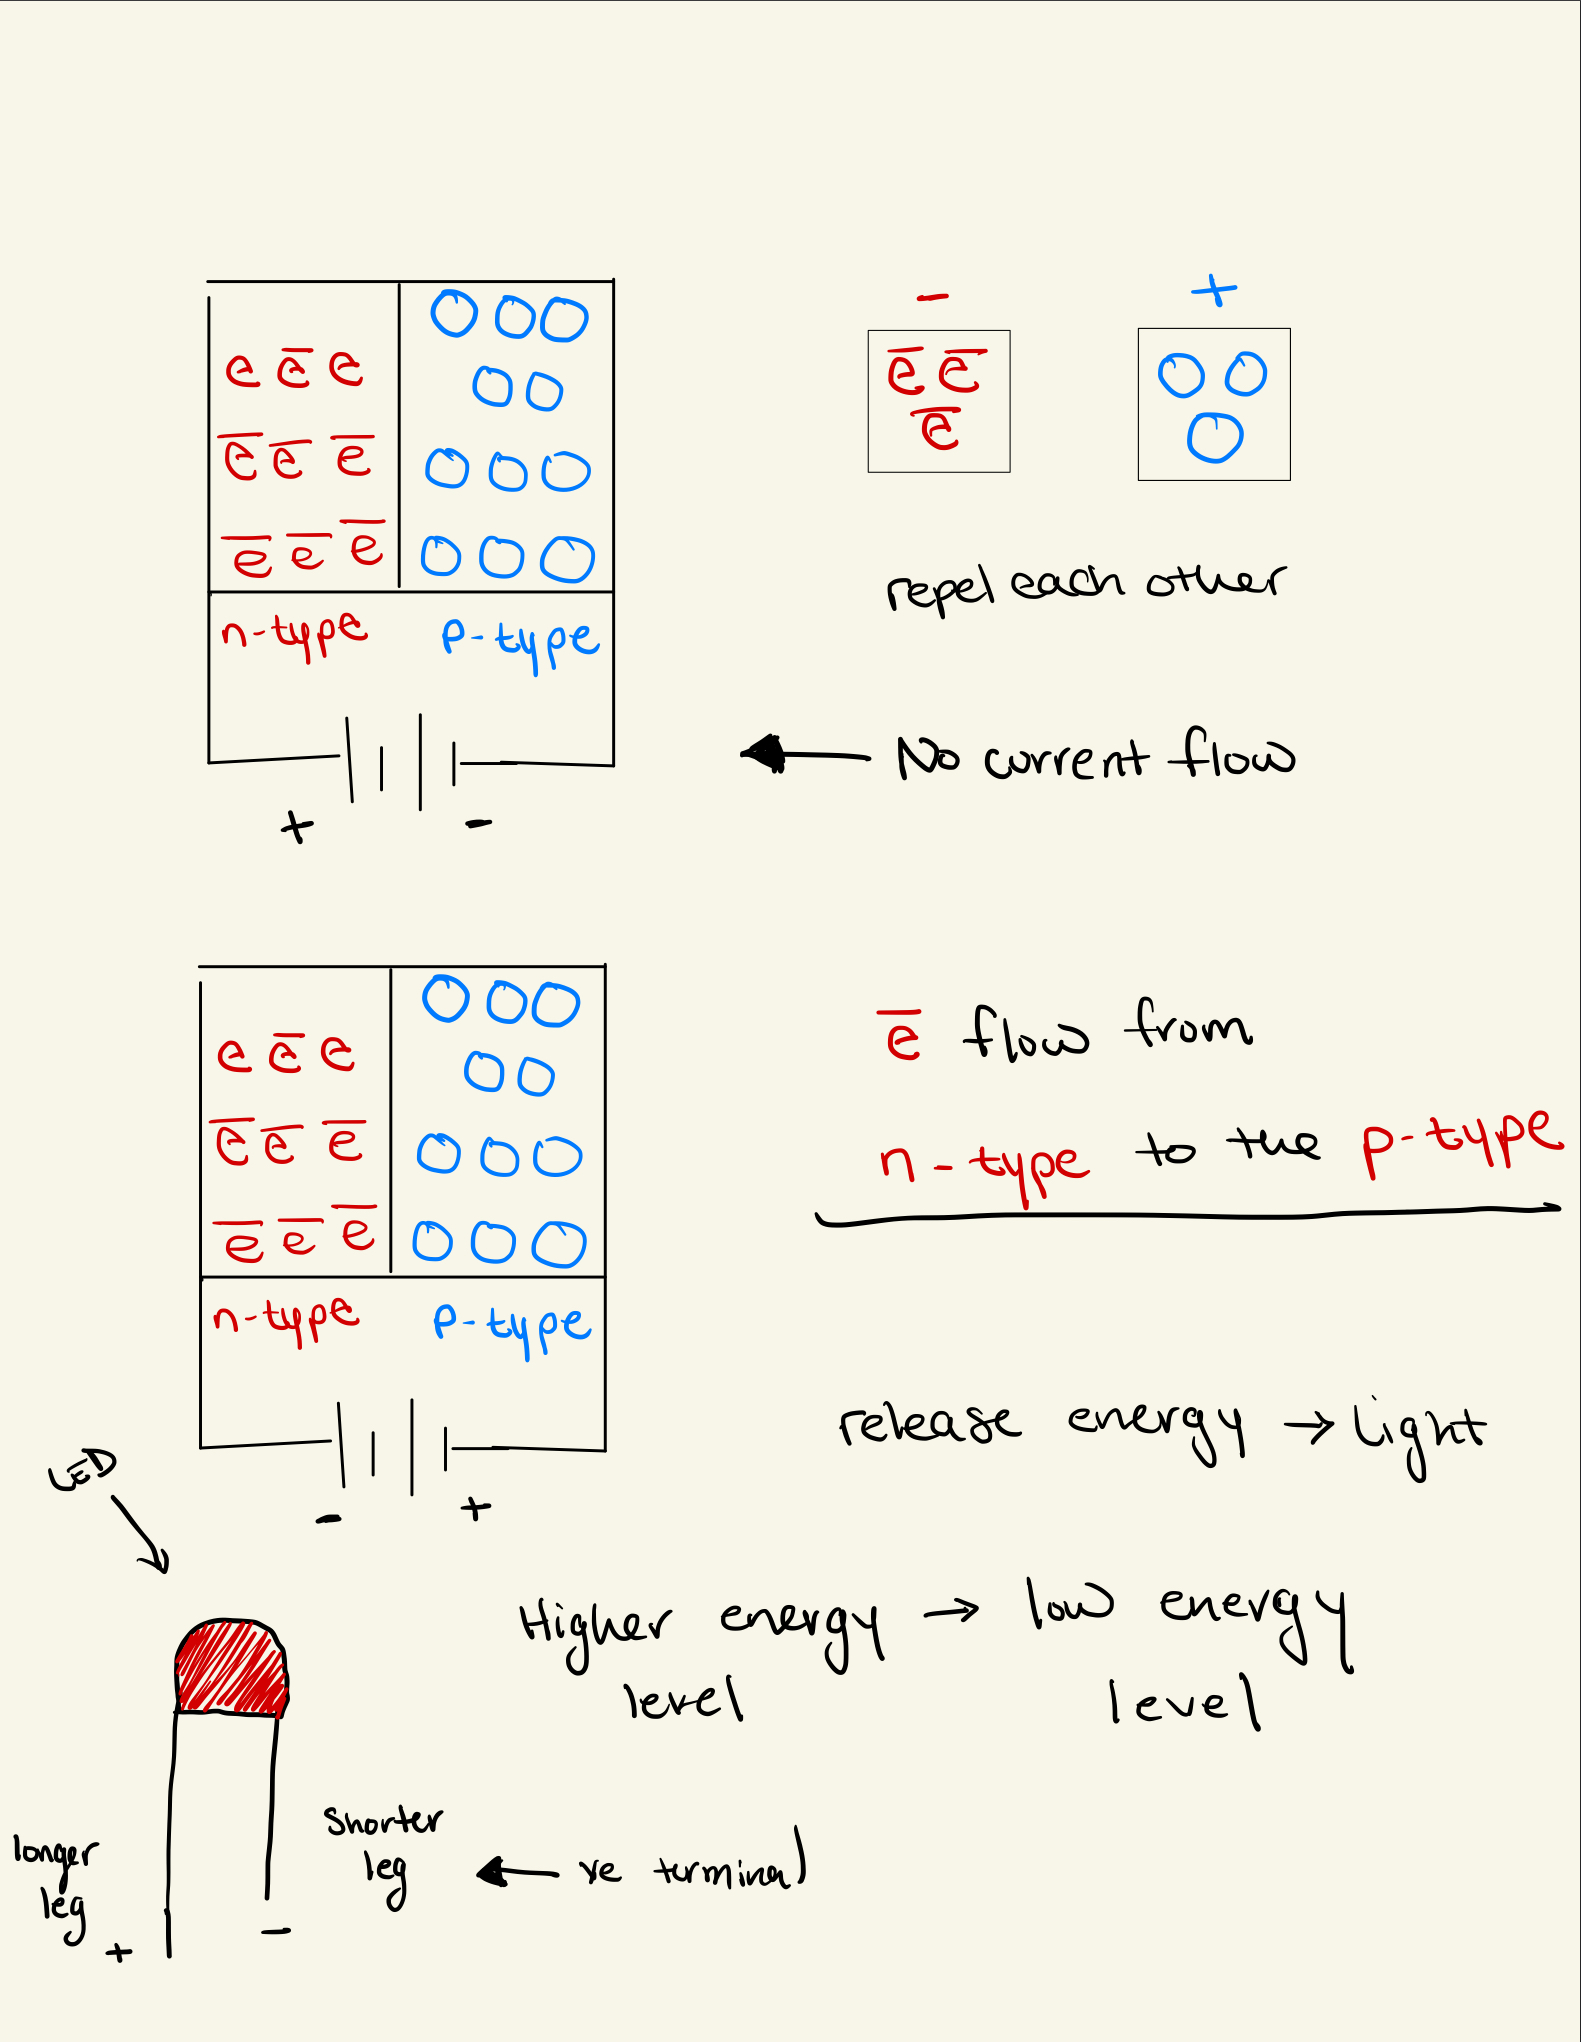 - +
e e̅ e
e̅ e̅ e̅
e̅ e̅ e̅
e̅ e̅
e̅
n-type p-type
repel each other
No current flow
+ -
e e̅ e
e̅ e̅ e̅
e̅ e̅ e̅
n-type p-type
e̅ flow from
n-type to the p-type
release energy → light
- +
LED
Higher energy → low energy
level level
longer
leg
+
-
Shorter
leg
ve terminal